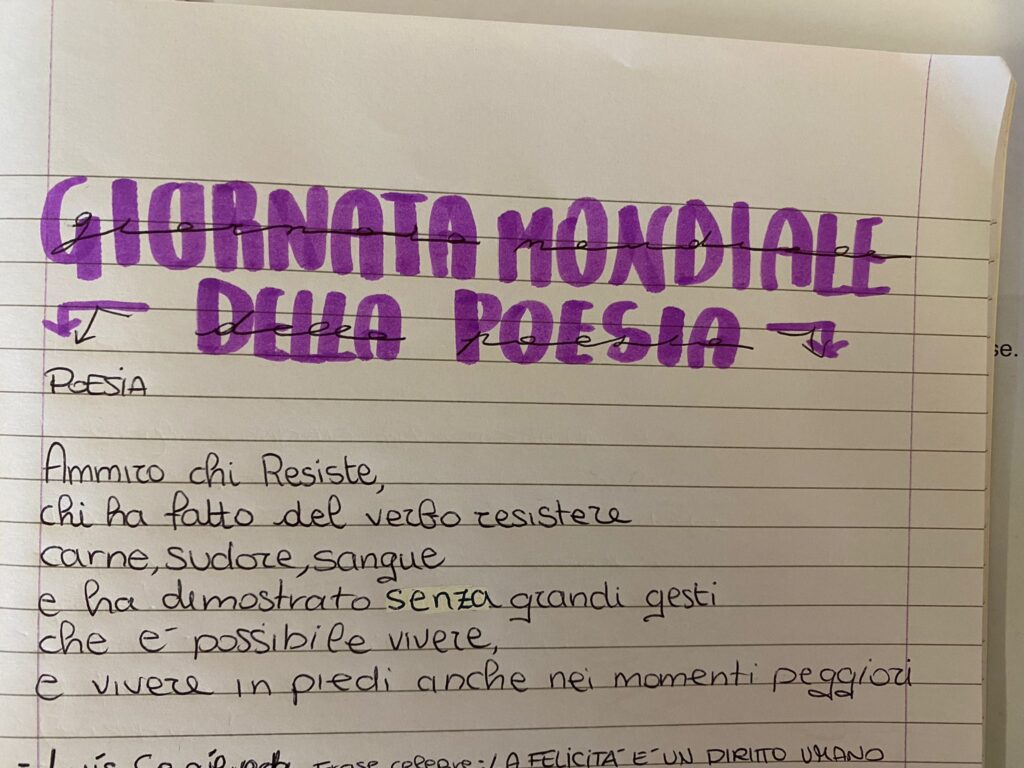 GIORNATA MONDIALE
giornata mondiale
DELLA POESIA
della poesia
POESIA
Ammiro chi Resiste,
chi ha fatto del verbo resistere
carne, sudore, sangue
e ha dimostrato senza grandi gesti
che è possibile vivere,
e vivere in piedi anche nei momenti peggiori
- Luis frase celebre: LA FELICITÀ È UN DIRITTO UMANO
se.